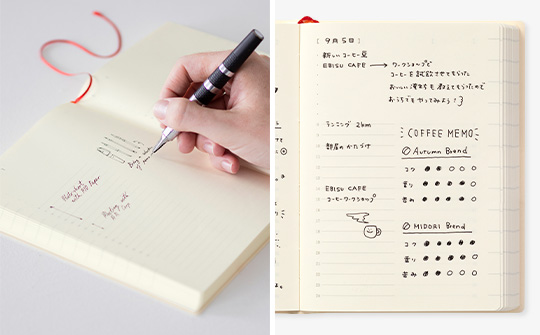 [9月5日]
新しいコーヒー豆
EBISU CAFE → ワークショップで
コーヒーを試飲させてもらった
おいしい淹れ方も教えてもらったので
おうちでもやってみよう!
ランニング 2km
部屋のかたづけ
EBISU CAFE
コーヒーワークショップ
COFFEE MEMO
Autumn Brend
コク
香り
苦み
MIDORI Brend
コク
香り
苦み